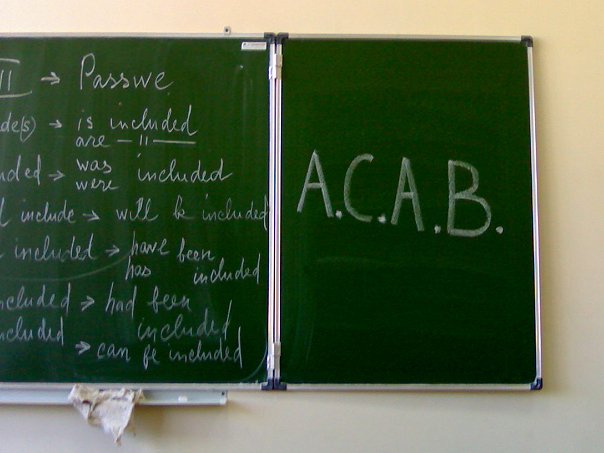 II → Passive
de(s) → is included
are —ıı—
nded → was
were included
l include → will be included
included → have been
has included
ncluded → had been
included
ncluded → can be included
A.C.A.B.